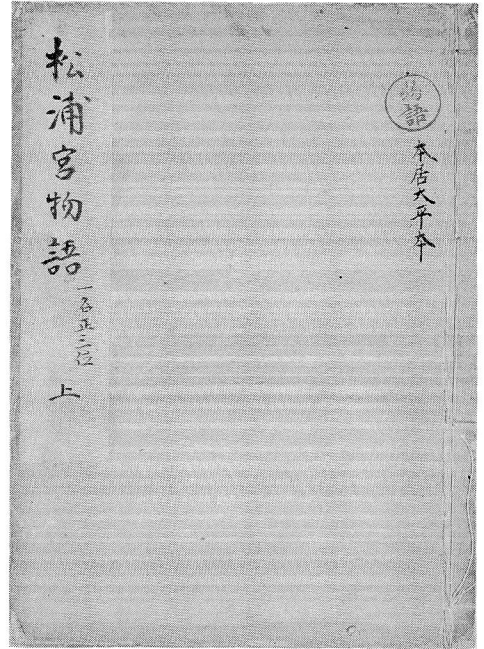 物語
本居大平本
松浦宮物語
一名正三位
上